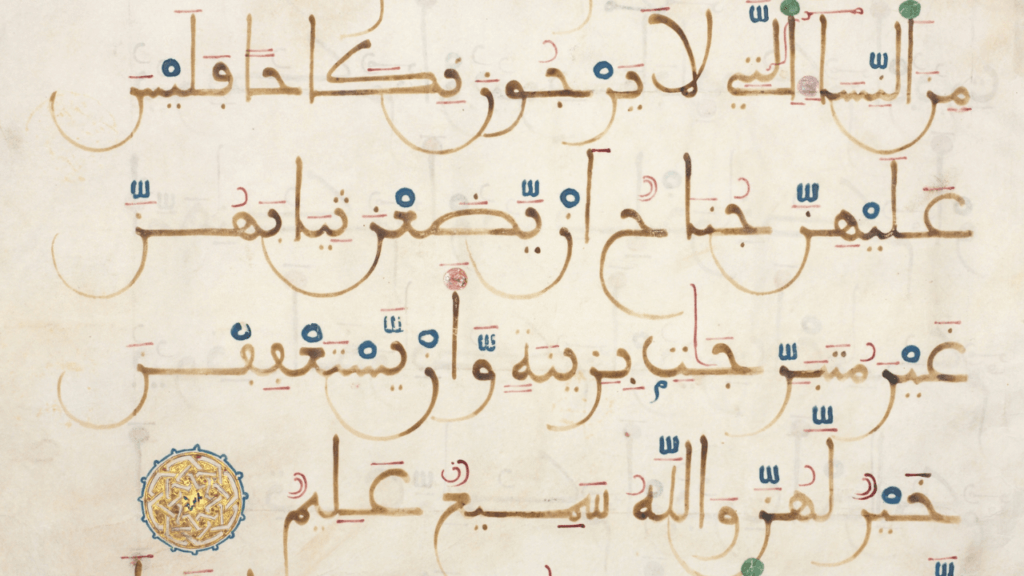 مِنَ اَ۬لنِّسَآءِ اِ۬لتِے لَا يَرْجُونَ نِكَاحاٗ فَلَيْسَ
عَلَيْهِنَّ جُنَاحٌ اَنْ يَّضَعْنَ ثِيَابَهُنَّ
غَيْرَ مُتَبَرِّجَٰتِۢ بِزِينَةٖ وَّأَنْ يَّسْتَعْفِفْنَ
خَيْرٞ لَّهُنَّ وَاللَّهُ سَمِيعٌ عَلِيمٞ